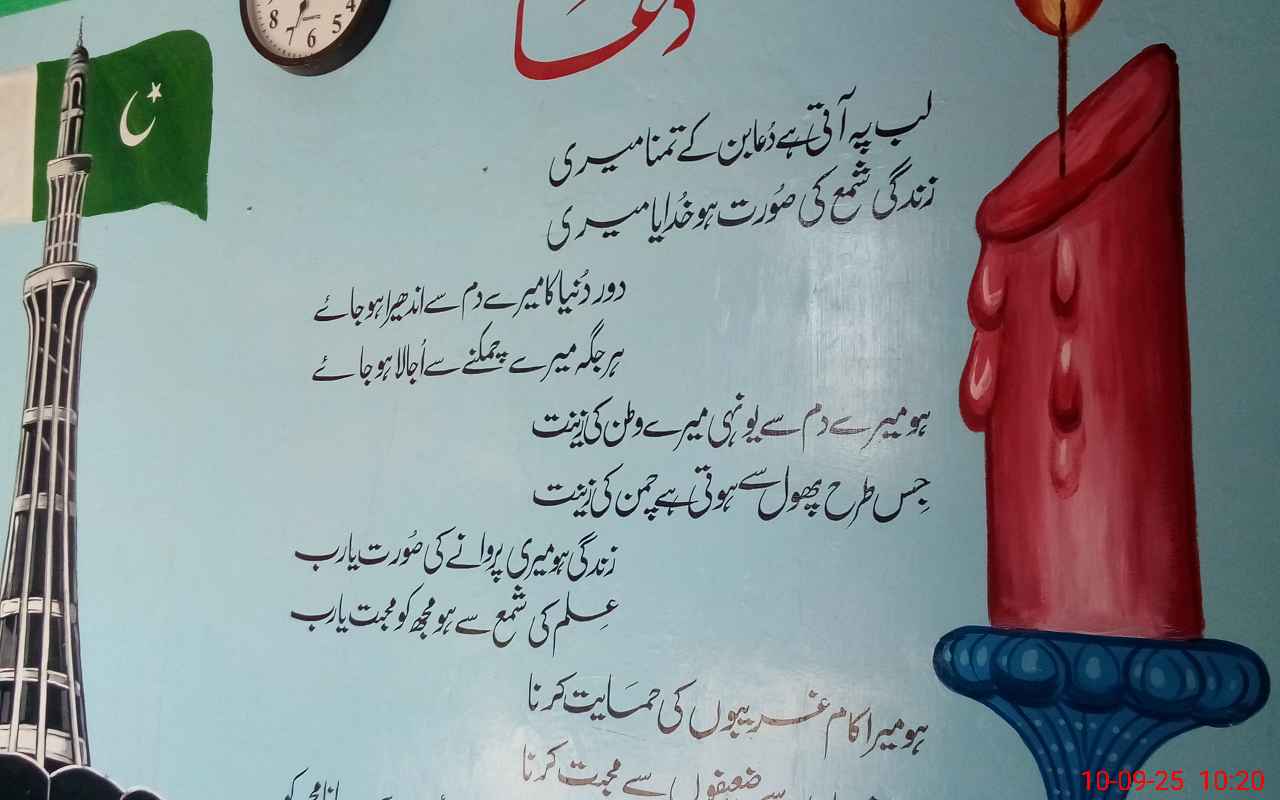 دُعا
لب پہ آتی ہے دُعا بن کے تمنا میری
زندگی شمع کی صُورت ہو خُدایا میری
دور دُنیا کا میرے دم سے اندھیرا ہو جائے
ہر جگہ میرے چمکنے سے اُجالا ہو جائے
ہو میرے دم سے یونہی میرے وطن کی زینت
جِس طرح پھول سے ہوتی ہے چمن کی زینت
زندگی ہو میری پروانے کی صُورت یارب
عِلم کی شمع سے ہو مجھ کو محبت یارب
ہو میرا کام غریبوں کی حمَایت کرنا
ضعیفوں سے محبت کرنا
8 7 6 5 4
10-09-25 10:20